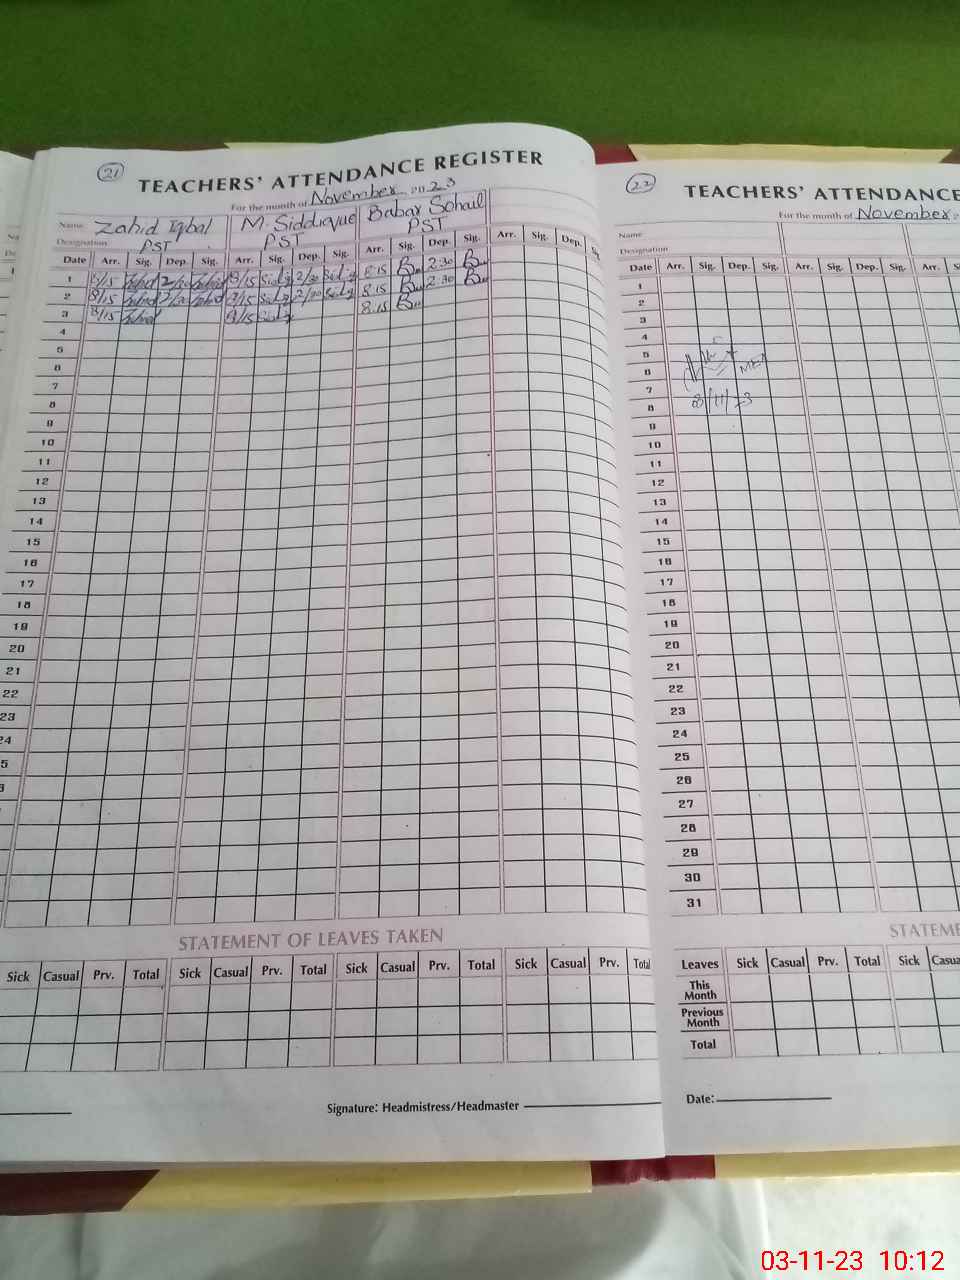 21
TEACHERS' ATTENDANCE REGISTER
For the month of November 2023
Name Zahid Iqbal M. Siddique Babar Sohail
Designation PST PST PST
Date Arr. Sig. Dep. Sig. Arr. Sig. Dep. Sig. Arr. Sig. Dep. Sig. Arr. Sig. Dep. Sig.
1 8/15 Zahid 2/30 Zahid 8/15 Sidiq 2/30 Sidiq 8:15 2:30
2 8/15 Zahid 2/30 Zahid 8/15 Sidiq 2/30 Sidiq 8:15 2:30
3 8/15 Zahid 8/15 Sidiq 8:15
4
5
6
7
8
9
10
11
12
13
14
15
16
17
18
19
20
21
22
23
24
5
STATEMENT OF LEAVES TAKEN
Sick Casual Prv. Total Sick Casual Prv. Total Sick Casual Prv. Total Sick Casual Prv. Total
Signature: Headmistress/Headmaster
22
TEACHERS' ATTENDANCE
For the month of November
Name
Designation
Date Arr. Sig. Dep. Sig. Arr. Sig. Dep. Sig. Arr. Sig.
1
2
3
4
5
6 MEA
7
8 3/11/23
9
10
11
12
13
14
15
16
17
18
19
20
21
22
23
24
25
26
27
28
29
30
31
STATEME
Leaves Sick Casual Prv. Total Sick Casua
This Month
Previous Month
Total
Date:
03-11-23 10:12